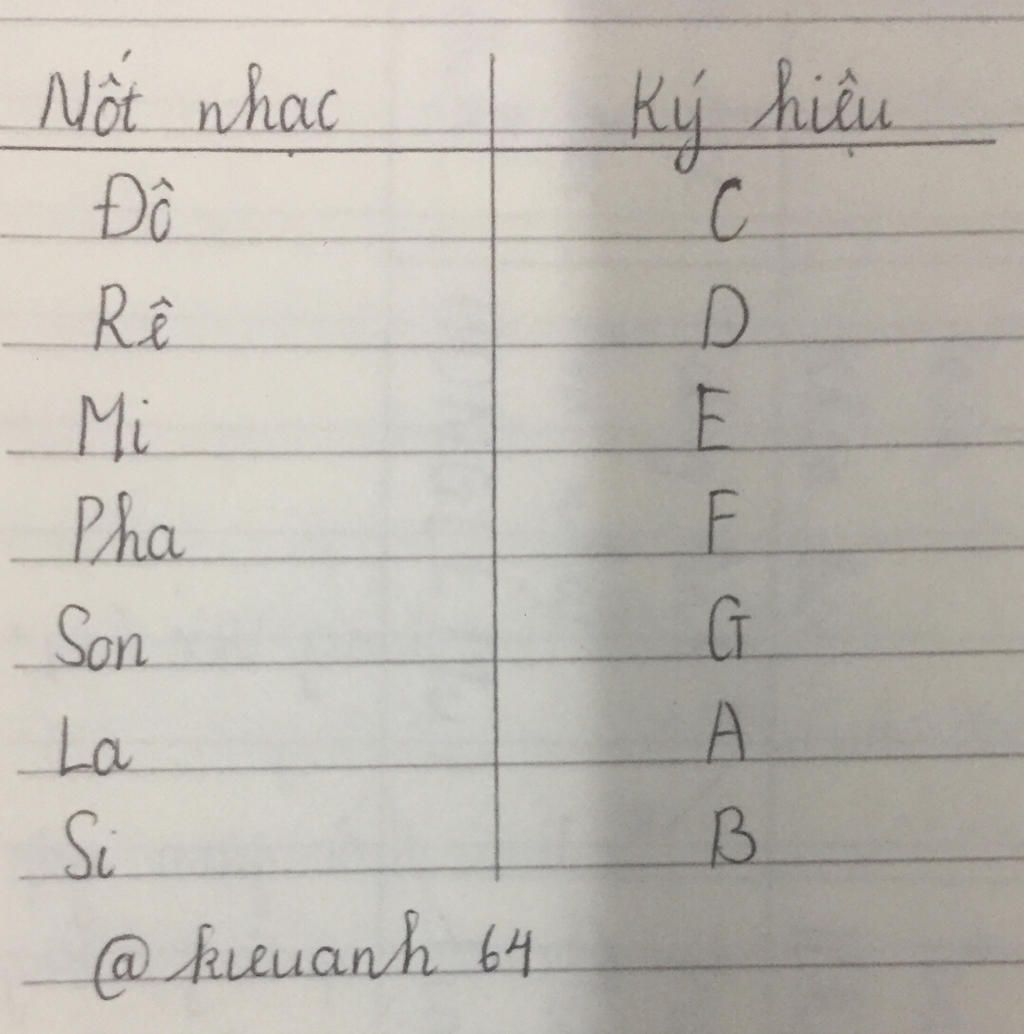 Nốt nhạc Ký hiệu
Đô C
Rê D
Mi E
Pha F
Son G
La A
Si B
@ kieuanh 64